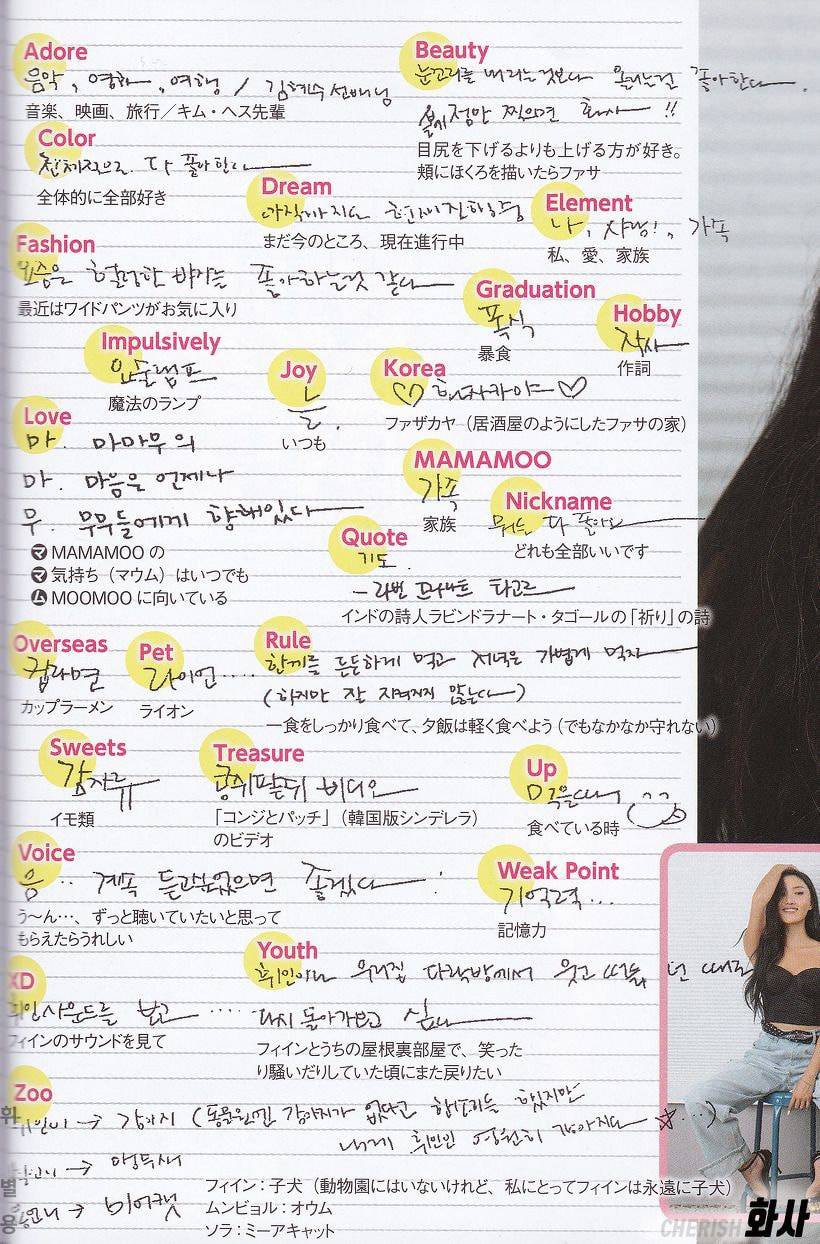 Adore
음악, 영화, 여행 / 김혜수 선배님
音楽、映画、旅行／キム・ヘス先輩
Beauty
눈꼬리를 내리는것보다 올리는걸 좋아한다.
점만 찍으면 화사 !!
目尻を下げるよりも上げる方が好き。
頬にほくろを描いたらファサ
Color
전체적으로 다 좋아한다
全体的に全部好き
Dream
아직까지는 현재진행중
まだ今のところ、現在進行中
Element
나, 사랑!, 가족
私、愛、家族
Fashion
요즘은 헐렁한 바지를 좋아하는것 같다
最近はワイドパンツがお気に入り
Graduation
폭식
暴食
Hobby
작사
作詞
Impulsively
요술램프
魔法のランプ
Joy
늘.
いつも
Korea
♡ 화자카야 ♡
ファザカヤ（居酒屋のようにしたファサの家）
Love
마. 마마무의
마. 마음은 언제나
무. 무무들에게 향해있다
マ MAMAMOO の
マ 気持ち（マウム）はいつでも
ム MOOMOO に向いている
MAMAMOO
가족
家族
Nickname
뭐든 다 좋아요
どれも全部いいです
Quote
기도.
- 라빈드라나트 타고르
インドの詩人ラビンドラナート・タゴールの「祈り」の詩
Overseas
컵라면
カップラーメン
Pet
라이언....
ライオン
Rule
한끼를 든든하게 먹고 저녁은 가볍게 먹자
(하지만 잘 지켜지지 않는다)
一食をしっかり食べて、夕飯は軽く食べよう（でもなかなか守れない）
Sweets
감자류
イモ類
Treasure
콩쥐팥쥐 비디오
「コンジとパッチ」（韓国版シンデレラ）
のビデオ
Up
먹을때
食べている時
Voice
음.. 계속 듣고싶었으면 좋겠다 !
う〜ん…、ずっと聴いていたいと思って
もらえたらうれしい
Weak Point
기억력...
記憶力
XD
휘인사운드를 보고 .....
フィインのサウンドを見て
Youth
휘인이랑 우리집 다락방에서 웃고 떠들던 때로
다시 돌아가보고 싶다
フィインとうちの屋根裏部屋で、笑った
り騒いだりしていた頃にまた戻りたい
Zoo
휘인이 → 강아지 (동물원엔 강아지가 없다고 하지만
내게 휘인인 영원히 강아지다 ☆...)
→ 앵무새
용선언니 → 미어캣
フィイン：子犬（動物園にはいないけれど、私にとってフィインは永遠に子犬）
ムンビョル：オウム
ソラ：ミーアキャット
CHERISH 화사